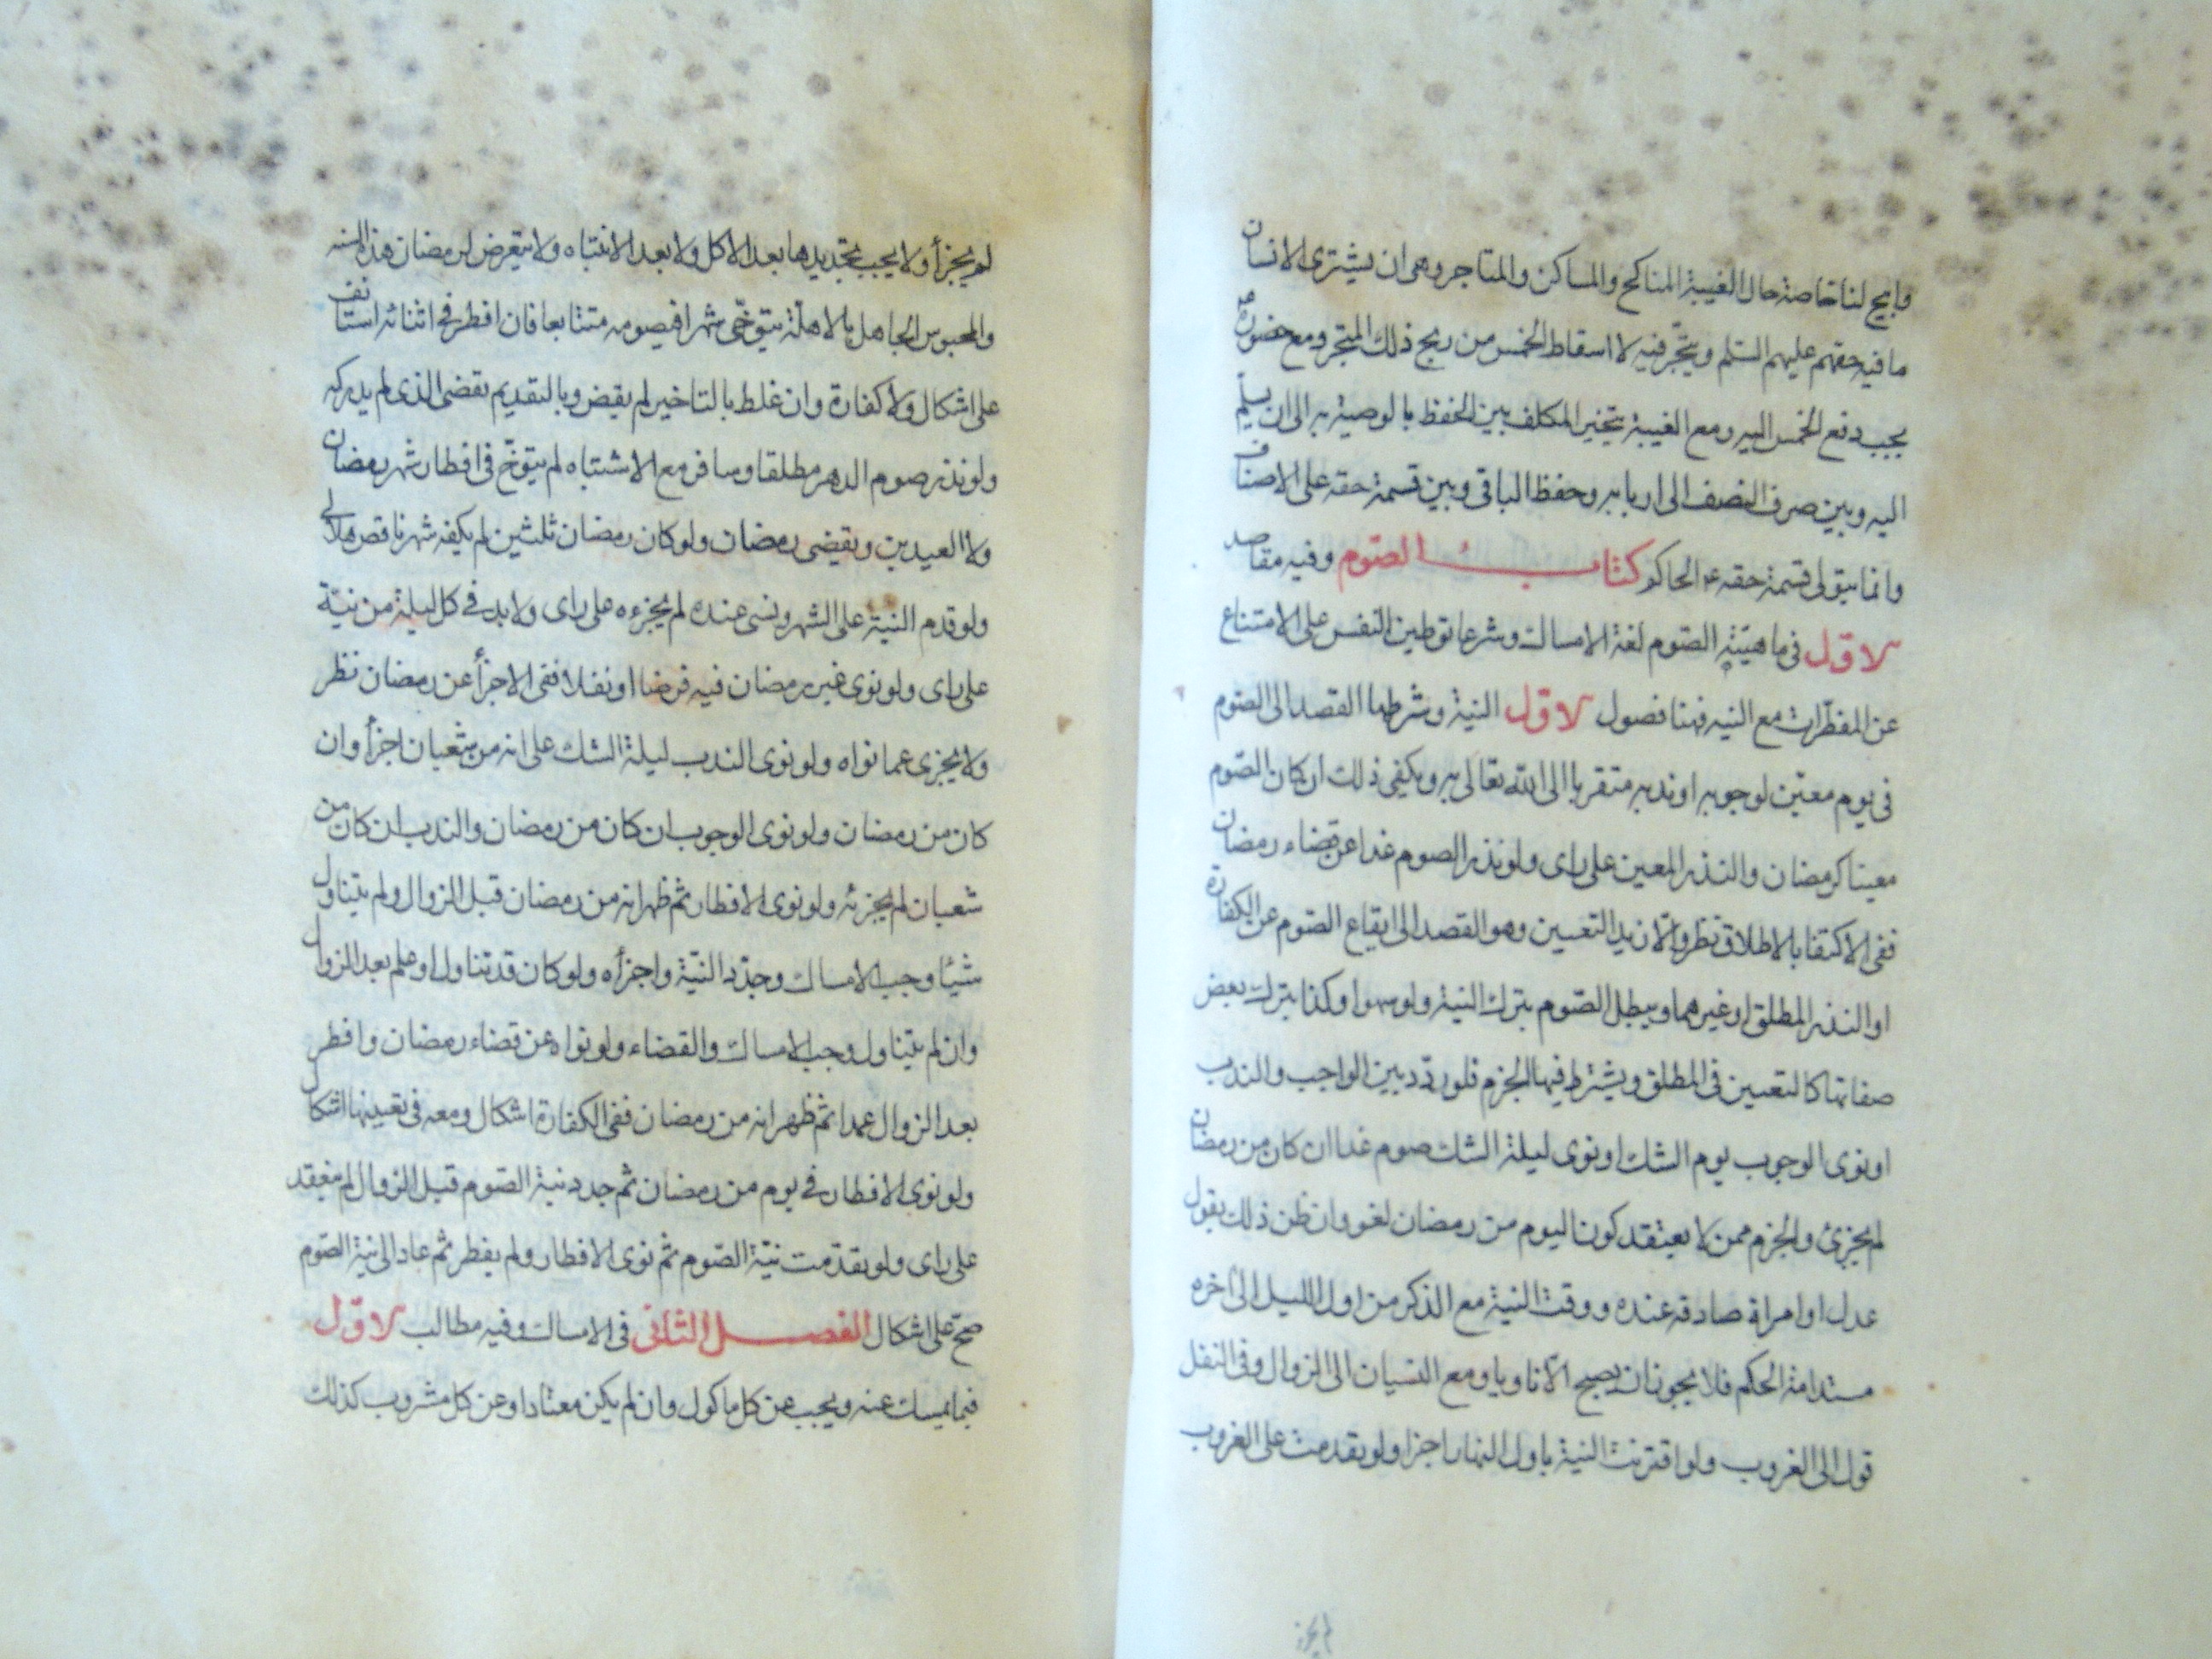 وابيح لنا خاصة حال الغيبة المناكح والمساكن والمتاجر وهى ان يشترى الانسان
ما فيه حقهم عليهم السلم ويتجر فيه لا اسقاط الخمس من ربح ذلك المتجر ومع حضوره ع
يجب دفع الخمس اليه ومع الغيبة يتخير المكلف بين الحفظ بالوصية به الى ان يسلم
اليه وبين صرف النصف الى اربابه وحفظ الباقى وبين قسمة حقه على الاصناف
وانما يتولى قسمة حقه ع الحاكم كتاب الصوم وفيه مقاصد
الاول فى ماهيته الصوم لغة الامساك وشرعا توطين النفس على الامتناع
عن المفطرات مع النيه فهنا فصول الاول النية وشرطها القصد الى الصوم
فى يوم معين لوجوبه او ندبه متقربا الى الله تعالى به ويكفى ذلك ان كان الصوم
معينا كرمضان والنذر المعين على راى ولو نذر الصوم غدا عن قضاء رمضان
ففى الاكتفا بالاطلاق نظر والا نريد التعيين وهو القصد الى ايقاع الصوم عن الكفارة
او النذر المطلق او غيرهما ويبطل الصوم بترك النية ولو سهوا وكذا بترك بعض
صفاتها كالتعيين فى المطلق ويشترط فيها الجزم فلو ردد بين الواجب والندب
او نوى الوجوب يوم الشك او نوى ليلة الشك صوم غدا ان كان من رمضان
لم يجزئ والجزم ممن لا يعتقد كون اليوم من رمضان لغو وان ظن ذلك بقول
عدل او امراة صادقه عنده ووقت النية مع الذكر من اول الليل الى اخره
مستدامة الحكم فلا يجوز ان يصبح الا ناويا ومع النسيان الى الزوال وفى النفل
قول الى الغروب ولو اقترنت النية باول النهار اجزا ولو تقدمت على الغروب
لم يجز
لم يجزأ ولا يجب تجديدها بعد الاكل ولا بعد الانتباه ولا يتعرض لرمضان هذه السنه
والمحبوس الجاهل بالاهلة يتوخى شهرا فيصومه متتابعا فان افطر فى اثنائه استانف
على اشكال ولا كفارة وان غلط بالتاخير لم يقض وبالتقديم يقضى الذى لم يدركه
ولو نذر صوم الدهر مطلقا وسافر مع الاشتباه لم يتوخ فى افطار شهر رمضان
ولا العيدين ويقضى رمضان ولو كان رمضان ثلثين لم يكفه شهر ناقص هلالى
ولو قدم النية على الشهر ونسى عنده لم يجزءه على راى ولا بد فى كل ليلة من نية
على راى ولو نوى غير رمضان فيه فرضا او نفلا ففى الاجزأ عن رمضان نظر
ولا يجزى عما نواه ولو نوى الندب ليلة الشك على انه من شعبان اجزأ وان
كان من رمضان ولو نوى الوجوب ان كان من رمضان والندب ان كان من
شعبان لم يجزئه ولو نوى الافطار ثم ظهر انه من رمضان قبل الزوال ولم يتناول
شيئا وجب الامساك وجدد النية واجزأه ولو كان قد تناول او علم بعد الزوال
وان لم يتناول وجب الامساك والقضاء ولو نواه عن قضاء رمضان وافطر
بعد الزوال عمدا ثم ظهر انه من رمضان ففى الكفارة اشكال ومعه فى تعيينها اشكال
ولو نوى الافطار فى يوم من رمضان ثم جدد نية الصوم قبل الزوال لم ينعقد
على راى ولو تقدمت نية الصوم ثم نوى الافطار ولم يفطر ثم عاد الى نية الصوم
صح على اشكال الفصل الثانى فى الامساك وفيه مطالب الاول
فيما يمسك عنه ويجب عن كل ماكول وان لم يكن معتادا وعن كل مشروب كذلك